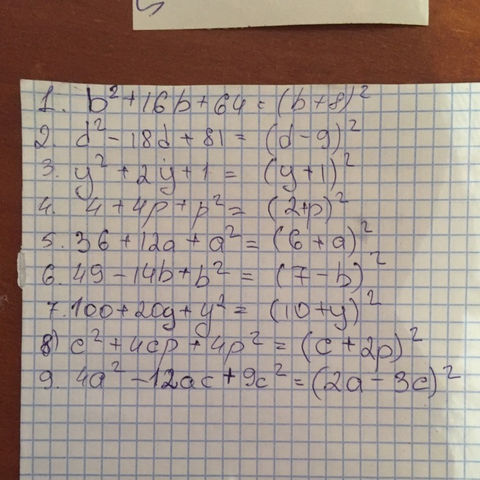 1. b² + 16b + 64 = (b + 8)²
2. d² - 18d + 81 = (d - 9)²
3. y² + 2y + 1 = (y + 1)²
4. 4 + 4p + p² = (2 + p)²
5. 36 + 12a + a² = (6 + a)²
6. 49 - 14b + b² = (7 - b)²
7. 100 + 20y + y² = (10 + y)²
8) c² + 4cp + 4p² = (c + 2p)²
9. 4a² - 12ac + 9c² = (2a - 3c)²